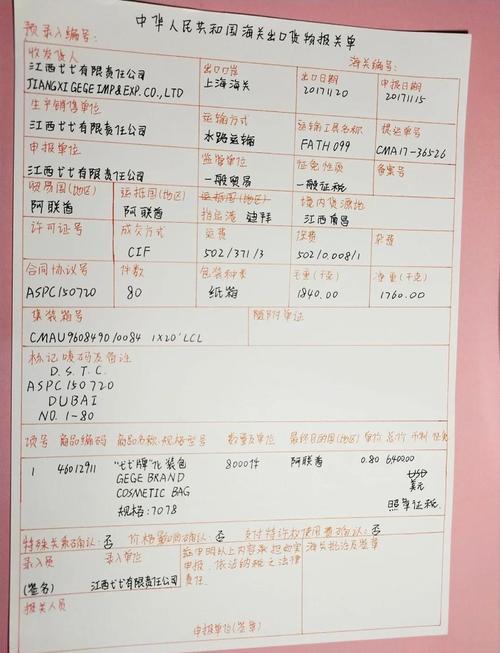 中华人民共和国海关出口货物报关单
预录入编号: 海关编号:
收发货人 出口口岸 出口日期 申报日期
江西弋弋有限责任公司 上海海关 20171120 20171115
JIANGXI GEGE IMP&EXP. CO., LTD
生产销售单位 运输方式 运输工具名称 提运单号
江西弋弋有限责任公司 水路运输 FATH 099 CMA17-36526
申报单位 监管方式 征免性质 备案号
江西弋弋有限责任公司 一般贸易 一般征税
贸易国(地区) 运抵国(地区) 运抵国(地区) 境内货源地
阿联酋 阿联酋 指运港 迪拜 江西南昌
许可证号 成交方式 运费 保费 杂费
CIF 502/371/3 502/0.008/1
合同协议号 件数 包装种类 毛重(千克) 净重(千克)
ASPC150720 80 纸箱 1840.00 1760.00
集装箱号 随附单证
CMAU9608490/0084 1X20'LCL
标记唛码及备注
D. S. T. C.
ASPC150720
DUBAI
NO. 1-80
项号 商品编码 商品名称、规格型号 数量及单位 最终目的国(地区) 单价 总价 币制 征免
1 46012911 "弋弋牌"化装包 8000件 阿联酋 0.80 6400.00
GEGE BRAND USD
COSMETIC BAG 美元
规格:7078 照章征税
特殊关系确认:否 价格影响确认:否 支付特许权使用费确认:否
录入员 录入单位 兹申明以上内容承担如实 海关批注及签章
申报、依法纳税之法律
(签名) 江西弋弋有限责任公司 责任.
报关人员
申报单位(签章)